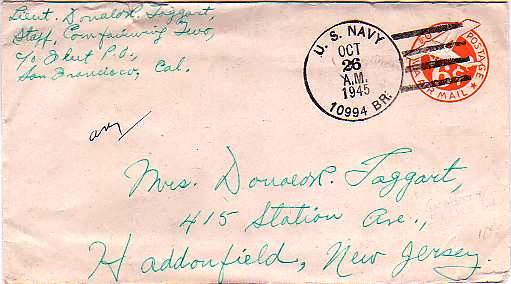 Lieut. Donald R. Taggart,
Staff, Comfairwing Two,
c/o Fleet P.O.,
San Francisco, Cal.
U. S. NAVY
OCT
26
A.M.
1945
10994 BR.
POSTAGE
6c
AIR MAIL
Mrs. Donald R. Taggart,
415 Station Ave.,
Haddonfield, New Jersey.